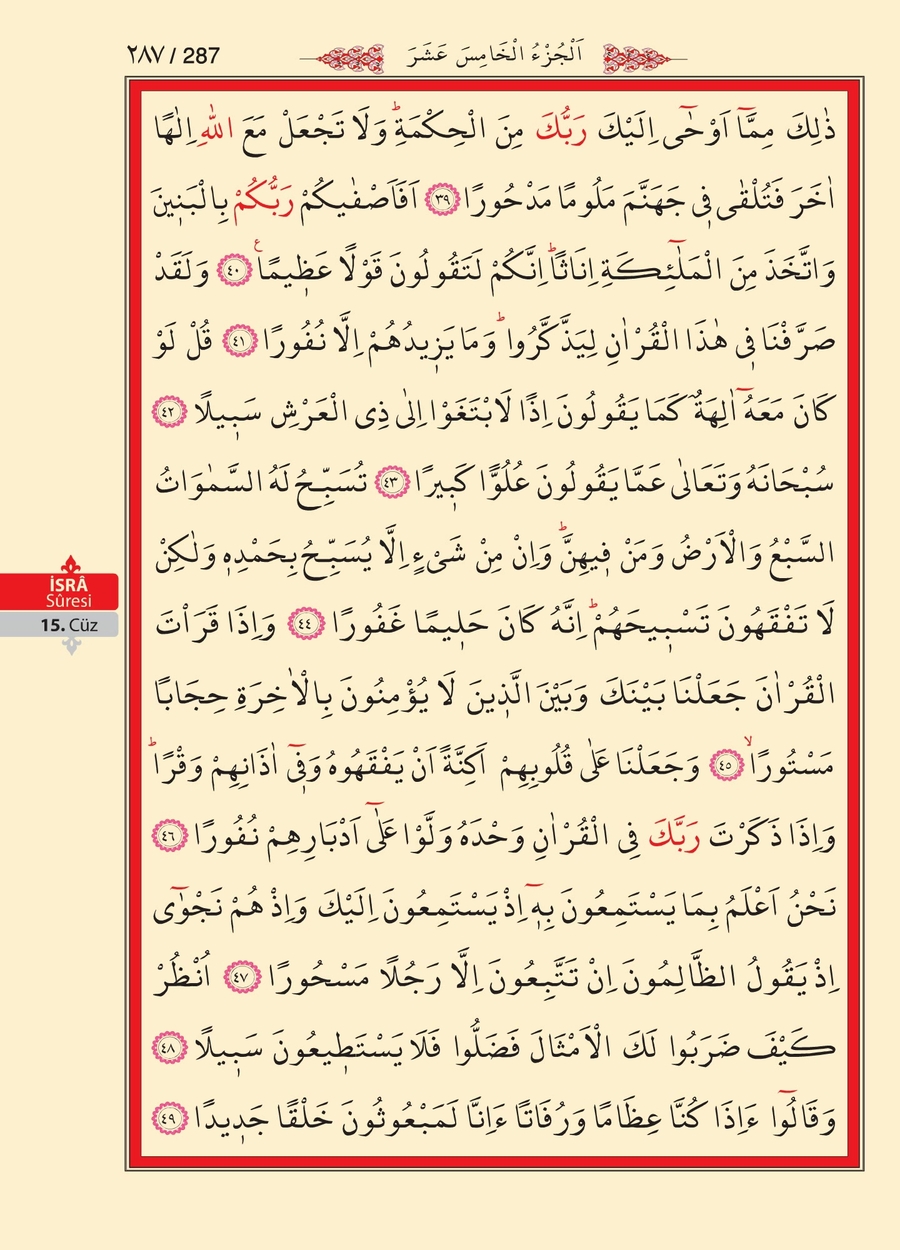 ٢٨٧ / 287
اَلْجُزْءُ الْخَامِسَ عَشَرَ
ذٰلِكَ مِمَّٓا اَوْحٰٓى اِلَيْكَ رَبُّكَ مِنَ الْحِكْمَةِۜ وَلَا تَجْعَلْ مَعَ اللّٰهِ اِلٰهًا
اٰخَرَ فَتُلْقٰى ف۪ي جَهَنَّمَ مَلُومًا مَدْحُورًا ﴿٣٩﴾ اَفَاَصْفٰيكُمْ رَبُّكُمْ بِالْبَن۪ينَ
وَاتَّخَذَ مِنَ الْمَلٰٓئِكَةِ اِنَاثًاۜ اِنَّكُمْ لَتَقُولُونَ قَوْلًا عَظ۪يمًا۟ ﴿٤٠﴾ وَلَقَدْ
صَرَّفْنَا ف۪ي هٰذَا الْقُرْاٰنِ لِيَذَّكَّرُواۜ وَمَا يَز۪يدُهُمْ اِلَّا نُفُورًا ﴿٤١﴾ قُلْ لَوْ
كَانَ مَعَهُٓ اٰلِهَةٌ كَمَا يَقُولُونَ اِذًا لَابْتَغَوْا اِلٰى ذِي الْعَرْشِ سَب۪يلًا ﴿٤٢﴾
سُبْحَانَهُ وَتَعَالٰى عَمَّا يَقُولُونَ عُلُوًّا كَب۪يرًا ﴿٤٣﴾ تُسَبِّحُ لَهُ السَّمٰوَاتُ
السَّبْعُ وَالْاَرْضُ وَمَنْ ف۪يهِنَّۜ وَاِنْ مِنْ شَيْءٍ اِلَّا يُسَبِّحُ بِحَمْدِه۪ وَلٰكِنْ
لَا تَفْقَهُونَ تَسْب۪يحَهُمْۜ اِنَّهُ كَانَ حَل۪يمًا غَفُورًا ﴿٤٤﴾ وَاِذَا قَرَأْتَ
الْقُرْاٰنَ جَعَلْنَا بَيْنَكَ وَبَيْنَ الَّذ۪ينَ لَا يُؤْمِنُونَ بِالْاٰخِرَةِ حِجَابًا
مَسْتُورًاۙ ﴿٤٥﴾ وَجَعَلْنَا عَلٰى قُلُوبِهِمْ اَكِنَّةً اَنْ يَفْقَهُوهُ وَف۪ٓي اٰذَانِهِمْ وَقْرًاۜ
وَاِذَا ذَكَرْتَ رَبَّكَ فِي الْقُرْاٰنِ وَحْدَهُ وَلَّوْا عَلٰٓى اَدْبَارِهِمْ نُفُورًا ﴿٤٦﴾
نَحْنُ اَعْلَمُ بِمَا يَسْتَمِعُونَ بِه۪ٓ اِذْ يَسْتَمِعُونَ اِلَيْكَ وَاِذْ هُمْ نَجْوٰٓى
اِذْ يَقُولُ الظَّالِمُونَ اِنْ تَتَّبِعُونَ اِلَّا رَجُلًا مَسْحُورًا ﴿٤٧﴾ اُنْظُرْ
كَيْفَ ضَرَبُوا لَكَ الْاَمْثَالَ فَضَلُّوا فَلَا يَسْتَط۪يعُونَ سَب۪يلًا ﴿٤٨﴾
وَقَالُٓوا ءَاِذَا كُنَّا عِظَامًا وَرُفَاتًا ءَاِنَّا لَمَبْعُوثُونَ خَلْقًا جَد۪يدًا ﴿٤٩﴾
İSRÂ
Sûresi
15. Cüz